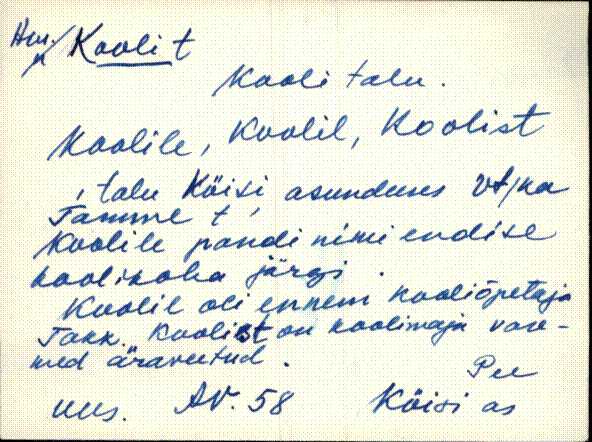 Hm. / Kooli t
n
Kooli talu.
Koolile, Koolil, Koolist
, talu Köisi asunduses vt/ka
Tamme t,
Koolile pandi nimi endise
koolikoha järgi.
Koolil oli ennem kooliõpetaja
Takk. Koolist on koolimaja vare-
med äraveetud.
Pee
uus. AV. 58 Köisi as